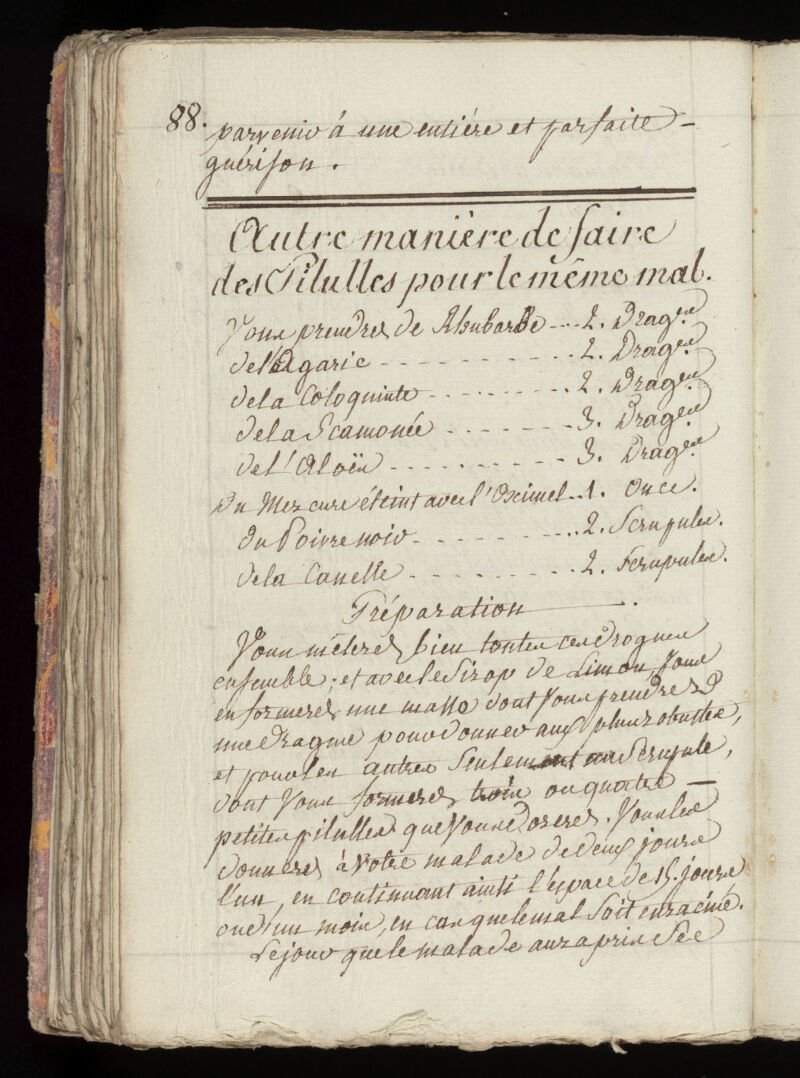 88. parvenir à une entiére et parfaite
guérison.
Autre maniére de faire
des Pilulles pour le même mal.
Vous prendrés de Rhubarbe --- 2. Dragmes
de l'Agaric - - - - - - - - - 2. Dragmes
de la Coloquinte - - - - - - - 2. Dragmes
de la Scamonée - - - - - - - 3. Dragmes
de l'Aloës - - - - - - - - - 3. Dragmes
Du Mercure éteint avec l'Oximel .. 1. Once.
du Poivre noir - - - - - - - ... 2. Scrupules.
de la Canelle - - - - - - - - 2. Scrupules.
Préparation .
Vous mêlerés bien toutes ces drogues
ensemble ; et avec le Sirop de Limon, Vous
en formerés une masse dont Vous prendrés
une dragme pour donner aux plus robustes,
et pour les autres Seulement un Scrupule,
dont Vous formerés trois ou quatre
petites pilulles que Vous dorerés. Vous les
donnerés à Votre malade de deux jours
l'un, en continuant ainsi l'espace de 15. jours
ou d'un mois, en cas que le mal Soit enraciné.
Le jour que le malade aura pris Ses